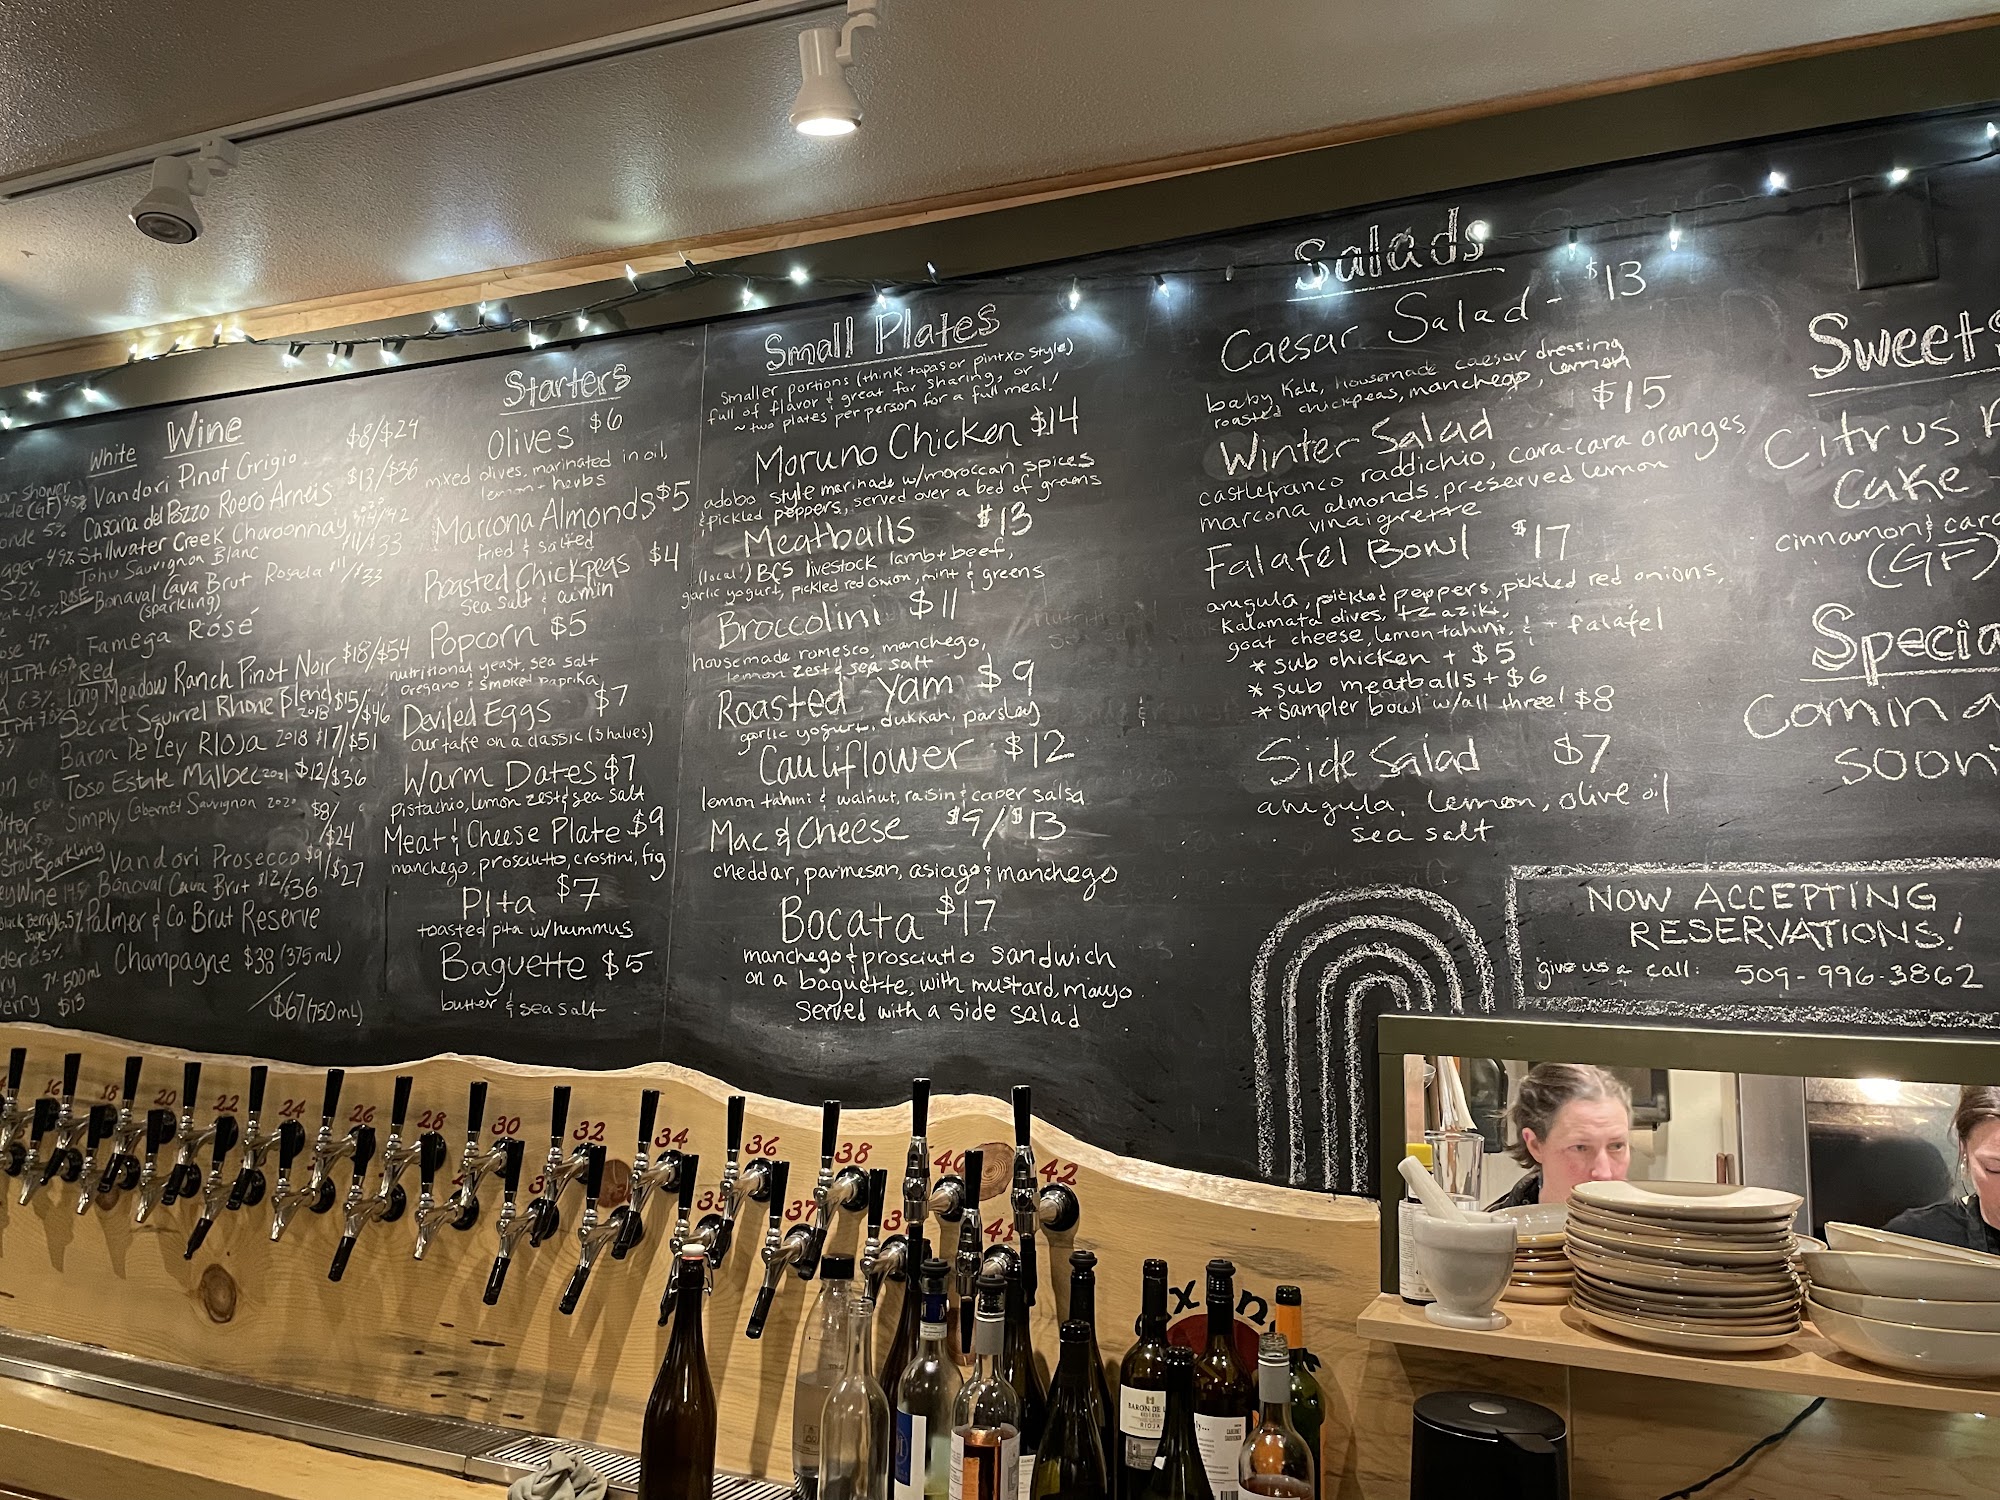 Wine
White
Vandori Pinot Grigio $8/$24
Casana del Pozzo Roero Arneis $13/$36
Stillwater Creek Chardonnay 2020 $14/$42
Tohu Sauvignon Blanc $11/$33
Rosé Bonaval Cava Brut Rosada $11/$33
(sparkling)
Famega Rósé
Red
Long Meadow Ranch Pinot Noir $18/$54
Secret Squirrel Rhone Blend 2018 $15/$46
Baron De Ley Rioja 2018 $17/$51
Toso Estate Malbec 2021 $12/$36
Simply Cabernet Sauvignon 2020 $8/
/$24
Sparkling
Vandori Prosecco $9/$27
Bonoval Cava Brut $12/$36
Palmer & Co. Brut Reserve
Champagne $38 (375 mL)
/$67 (750 mL)
Starters
Olives $6
mixed olives, marinated in oil,
lemon + herbs
Marcona Almonds $5
fried & salted
Roasted Chickpeas $4
Sea salt & cumin
Popcorn $5
nutritional yeast, sea salt
oregano & smoked paprika
Deviled Eggs $7
our take on a classic (3 halves)
Warm Dates $7
pistachio, lemon zest & sea salt
Meat & Cheese Plate $9
manchego, prosciutto, crostini, fig
Pita $7
toasted pita w/hummus
Baguette $5
butter & sea salt
Small Plates
Smaller portions (think tapas or pintxo style)
full of flavor & great for sharing, or
~ two plates per person for a full meal!
Moruno Chicken $14
adobo style marinade w/moroccan spices
& pickled peppers, served over a bed of greens
Meatballs $13
(local!) BCS livestock lamb + beef,
garlic yogurt, pickled red onion, mint & greens
Broccolini $11
housemade romesco, manchego,
lemon zest & sea salt
Roasted Yam $9
garlic yogurt, dukkah, parsley
Cauliflower $12
lemon tahini & walnut, raisin & caper salsa
Mac & Cheese $9/$13
cheddar, parmesan, asiago & manchego
Bocata $17
manchego & prosciutto sandwich
on a baguette, with mustard, mayo
Served with a side salad
Salads
Caesar Salad - $13
baby kale, housemade caesar dressing
roasted chickpeas, manchego, lemon
Winter Salad $15
castlefranco raddichio, cara-cara oranges,
marcona almonds, preserved lemon
vinaigrette
Falafel Bowl $17
arugula, pickled peppers, pickled red onions,
Kalamata olives, tzaziki,
goat cheese, lemon tahini, & + falafel
* sub chicken + $5
* sub meatballs + $6
* Sampler bowl w/all three! $8
Side Salad $7
arugula, lemon, olive oil
sea salt
Sweets
Citrus
Cake
cinnamon &
(GF)
Specia
Comin
soon
NOW ACCEPTING
RESERVATIONS!
give us a call: 509-996-3862
16 18 20 22 24 26 28 30 32 34 36 38 40 42
35 37 41
BARON DE L
RIOJA